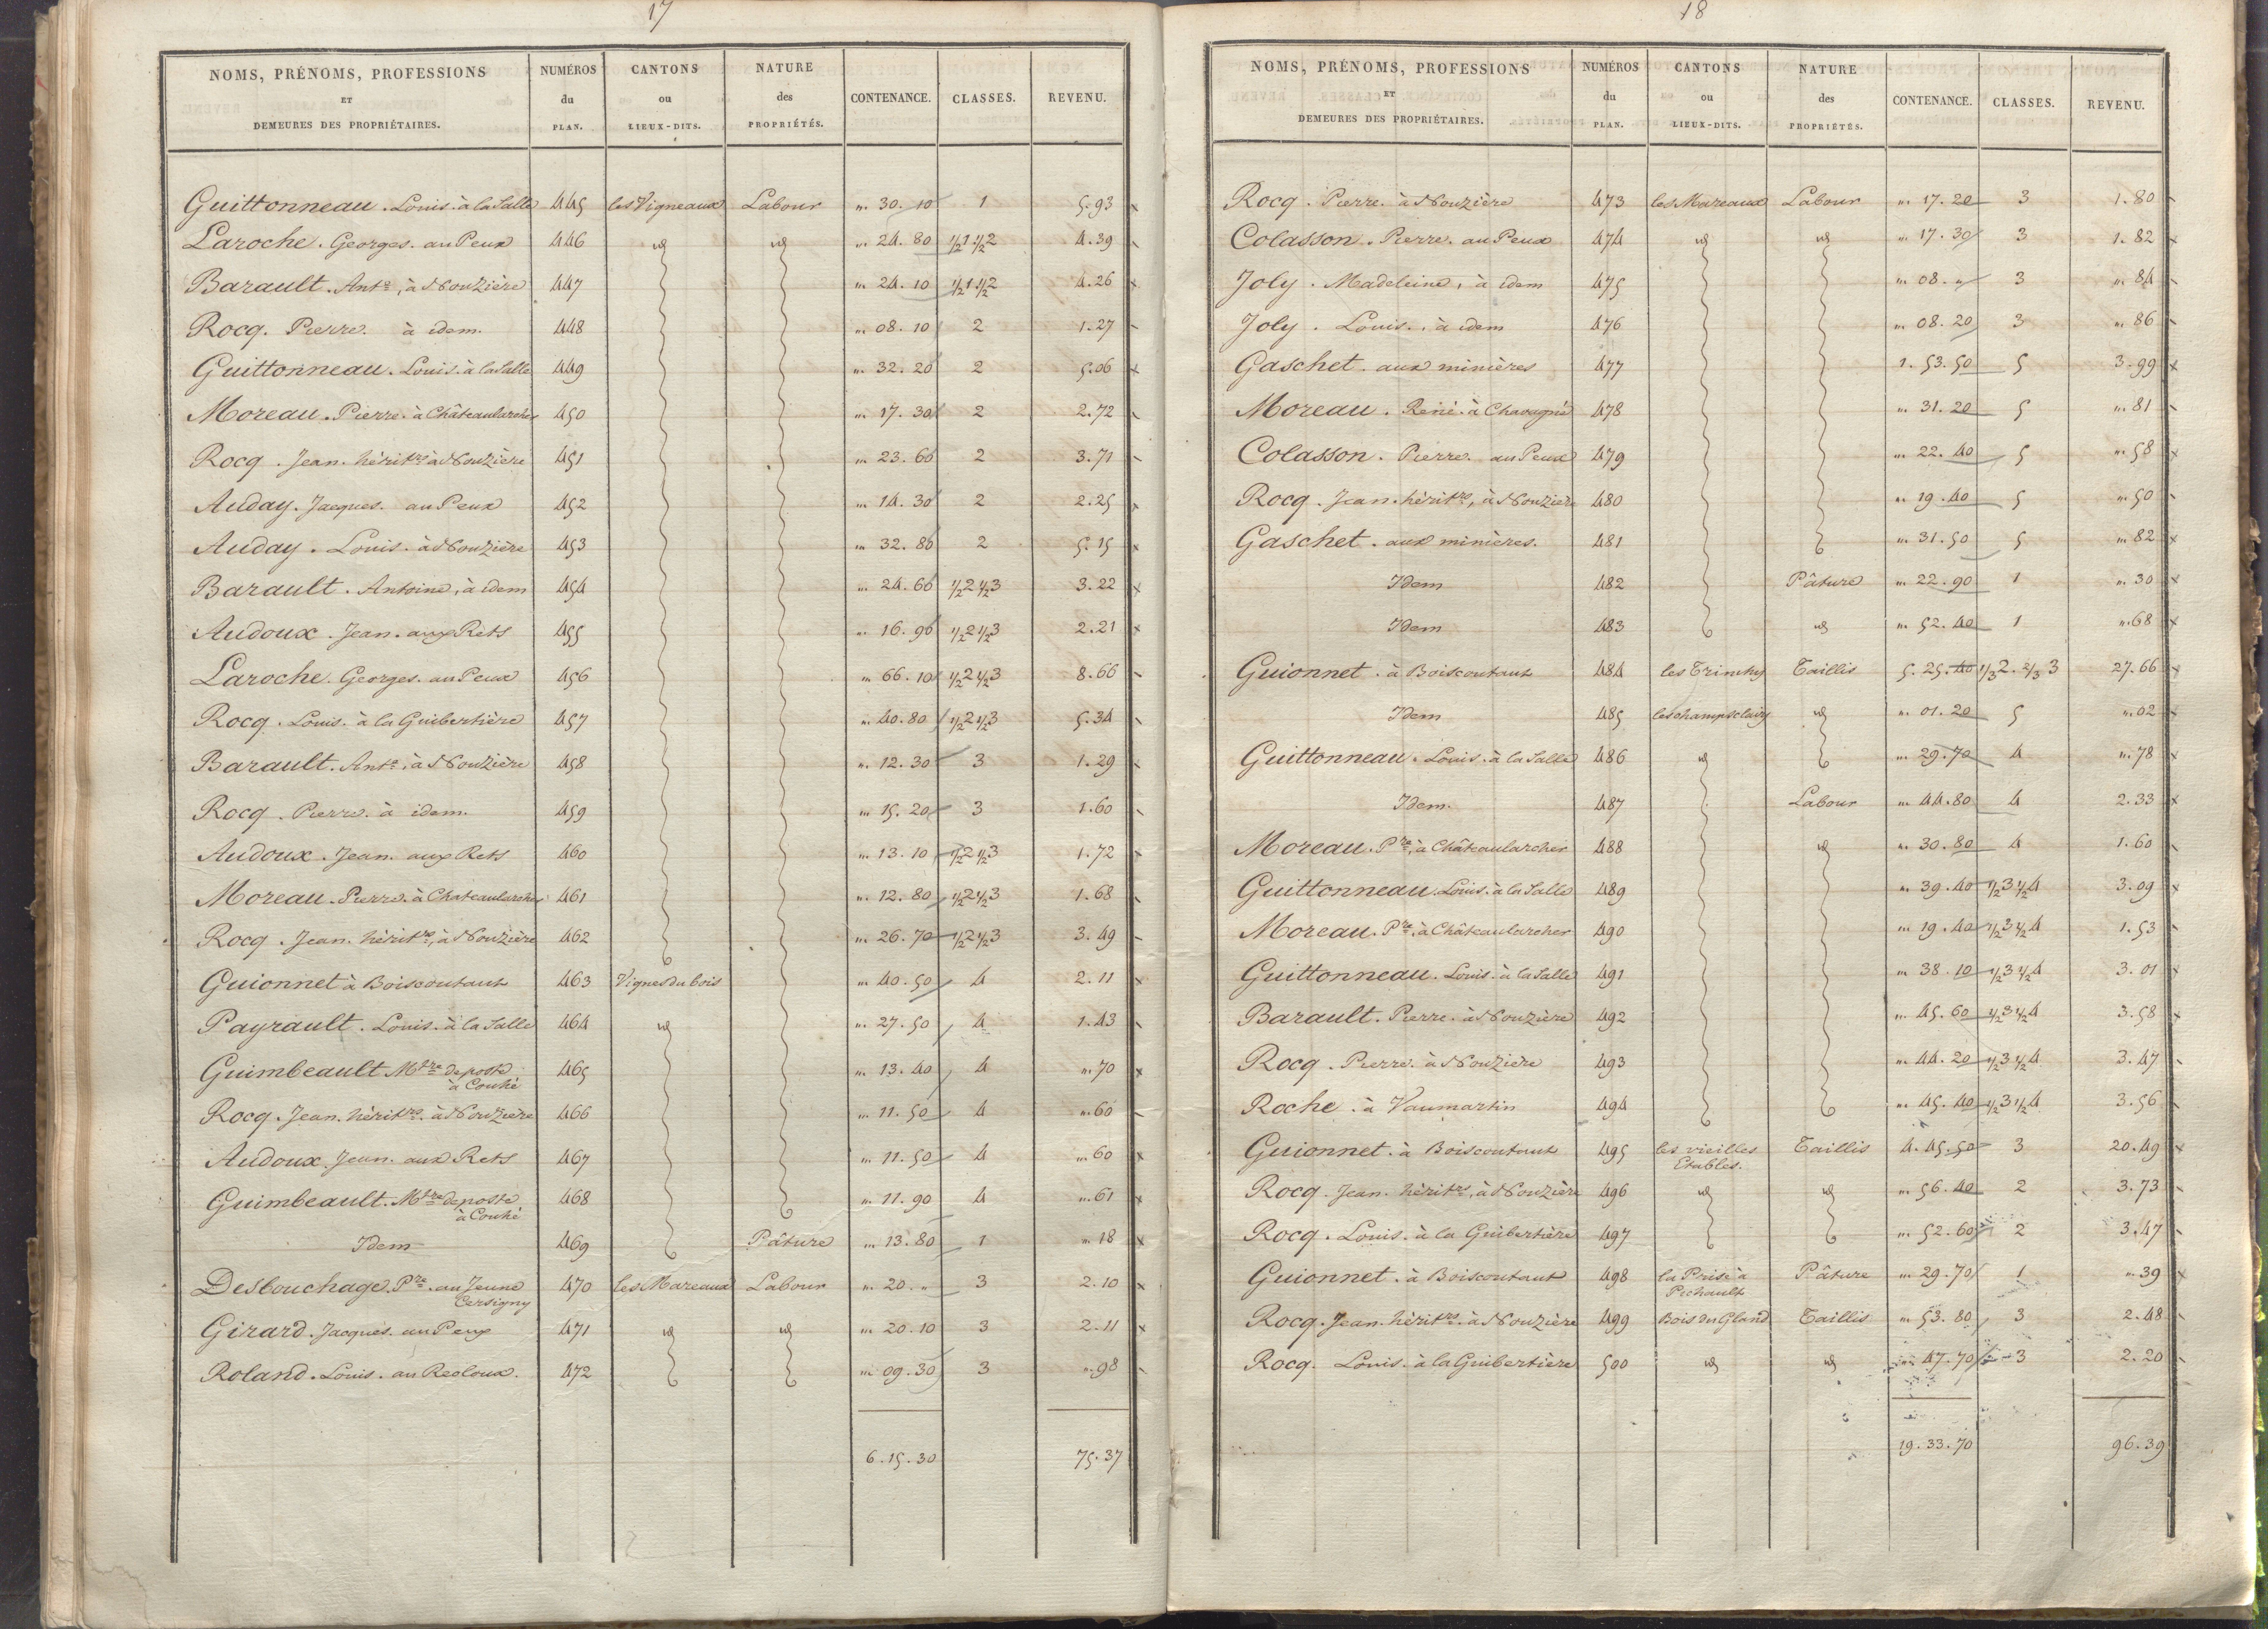 17
NOMS, PRÉNOMS, PROFESSIONS ET DEMEURES DES PROPRIÉTAIRES. NUMÉROS du PLAN. CANTONS ou LIEUX-DITS. NATURE des PROPRIÉTÉS. CONTENANCE. CLASSES. REVENU.
Guittonneau. Louis. à la Salle 445 les Vigneaux Labour "" 30. 10 1 5.93
Laroche. Georges. au Peux 446 id id "" 24. 80 1/2 1 1/2 2 4.39
Barault. Ante, à Nouzière 447 "" 24. 10 1/2 1 1/2 2 4.26
Rocq. Pierre. à idem. 448 "" 08. 10 2 1.27
Guittonneau. Louis. à la Salle 449 "" 32. 20 2 5.06
Moreau. Pierre. à Châteaularcher 450 "" 17. 30 2 2.72
Rocq. Jean. héritrs à Nouzière 451 "" 23. 60 2 3.71
Auday. Jacques. au Peux 452 "" 14. 30 2 2.25
Auday. Louis. à Nouzière 453 "" 32. 80 2 5.15
Barault. Antoine, à idem 454 "" 24. 60 1/2 2 1/2 3 3.22
Audoux. Jean. aux Rets 455 "" 16. 90 1/2 2 1/2 3 2.21
Laroche. Georges. au Peux 456 "" 66. 10 1/2 2 1/2 3 8.66
Rocq. Louis. à la Guibertière 457 "" 40. 80 1/2 2 1/2 3 5.34
Barault. Ante. à Nouzière 458 "" 12. 30 3 1.29
Rocq. Pierre. à idem. 459 "" 15. 20 3 1.60
Audoux. Jean. aux Rets 460 "" 13. 10 1/2 2 1/2 3 1.72
Moreau. Pierre. à Chateaularcher 461 "" 12. 80 1/2 2 1/2 3 1.68
Rocq. Jean. héritrs, à Nouzière 462 "" 26. 70 1/2 2 1/2 3 3.49
Guionnet à Boiscoutant 463 Vignes du bois "" 40. 50 4 2.11
Payrault. Louis. à la Salle 464 id "" 27. 50 4 1.43
Guimbeault Mtre de poste à Couhé 465 "" 13. 40 4 "". 70
Rocq. Jean. héritrs. à Nouzière 466 "" 11. 50 4 "". 60
Audoux. Jean. aux Rets 467 "" 11. 50 4 "". 60
Guimbeault. Mtre de poste à Couhé 468 "" 11. 90 4 "". 61
Idem 469 Pâture "" 13. 80 1 "". 18
Desbouchage. Pre. au Jeune Cersigny 470 les Mareaux Labour "" 20. " 3 2.10
Girard. Jacques. au Peux 471 id id "" 20. 10 3 2.11
Roland. Louis. au Recloux. 472 "" 09. 30 3 "". 98
6. 15. 30 75.37
18
NOMS, PRÉNOMS, PROFESSIONS ET DEMEURES DES PROPRIÉTAIRES. NUMÉROS du PLAN. CANTONS ou LIEUX-DITS. NATURE des PROPRIÉTÉS. CONTENANCE. CLASSES. REVENU.
Rocq. Pierre. à Nouzière 473 les Mareaux Labour "" 17. 20 3 1.80
Colasson. Pierre. au Peux 474 id id "" 17. 30 3 1.82
Joly. Madeleine, à idem 475 "" 08. " 3 "". 84
Joly. Louis. à idem 476 "" 08. 20 3 "". 86
Gaschet. aux minières 477 1. 53. 50 5 3.99
Moreau. René. à Chavagné 478 "" 31. 20 5 "". 81
Colasson. Pierre. au Peux 479 "" 22. 40 5 "". 58
Rocq. Jean. héritrs, à Nouzière 480 "" 19. 40 5 "". 50
Gaschet. aux minières. 481 "" 31. 50 5 "". 82
Idem 482 Pâture "" 22. 90 1 "". 30
Idem 483 id "" 52. 40 1 "". 68
Guionnet. à Boiscoutant 484 les Taillis 5. 25. 40 1/3 2. 2/3 3 27.66
Idem 485 les champs clairs id "" 01. 20 5 "". 02
Guittonneau. Louis. à la Salle 486 id "" 29. 70 4 "". 78
Idem. 487 Labour "" 44. 80 4 2.33
Moreau. Pre, à Châteaularcher 488 id "" 30. 80 4 1.60
Guittonneau. Louis. à la Salle 489 "" 39. 40 1/2 3 1/2 4 3.09
Moreau. Pre, à Châteaularcher 490 "" 19. 40 1/2 3 1/2 4 1.53
Guittonneau. Louis. à la Salle 491 "" 38. 10 1/2 3 1/2 4 3.01
Barault. Pierre. à Nouzière 492 "" 45. 60 1/2 3 1/2 4 3.58
Rocq. Pierre. à Nouzière 493 "" 44. 20 1/2 3 1/2 4 3.47
Roche. à Vaumartin 494 "" 45. 40 1/2 3 1/2 4 3.56
Guionnet. à Boiscoutant 495 les vieilles Etables. Taillis 4. 45. 50 3 20.49
Rocq. Jean. héritrs, à Nouzière 496 id id "" 56. 40 2 3.73
Rocq. Louis. à la Guibertière 497 "" 52. 60 2 3.47
Guionnet. à Boiscoutant 498 la Prise à Pechault Pâture "" 29. 70 1 "". 39
Rocq. Jean. héritrs. à Nouzière 499 Bois du Gland Taillis "" 53. 80 3 2.48
Rocq. Louis. à la Guibertière 500 id id "" 47. 70 3 2.20
19. 33. 70 96.39